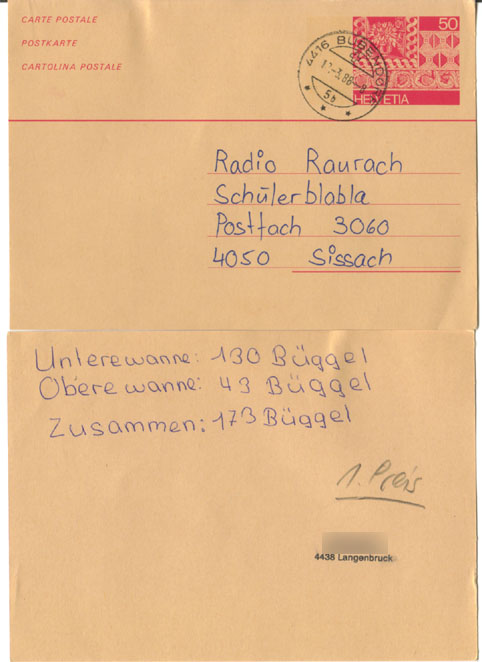 CARTE POSTALE
POSTKARTE
CARTOLINA POSTALE
50
HELVETIA
4416 BUBENDORF
5b
Radio Raurach
Schülerblabla
Postfach 3060
4050 Sissach
Unterewanne: 130 Büggel
Oberewanne: 43 Büggel
Zusammen: 173 Büggel
1. Preis
4438 Langenbruck